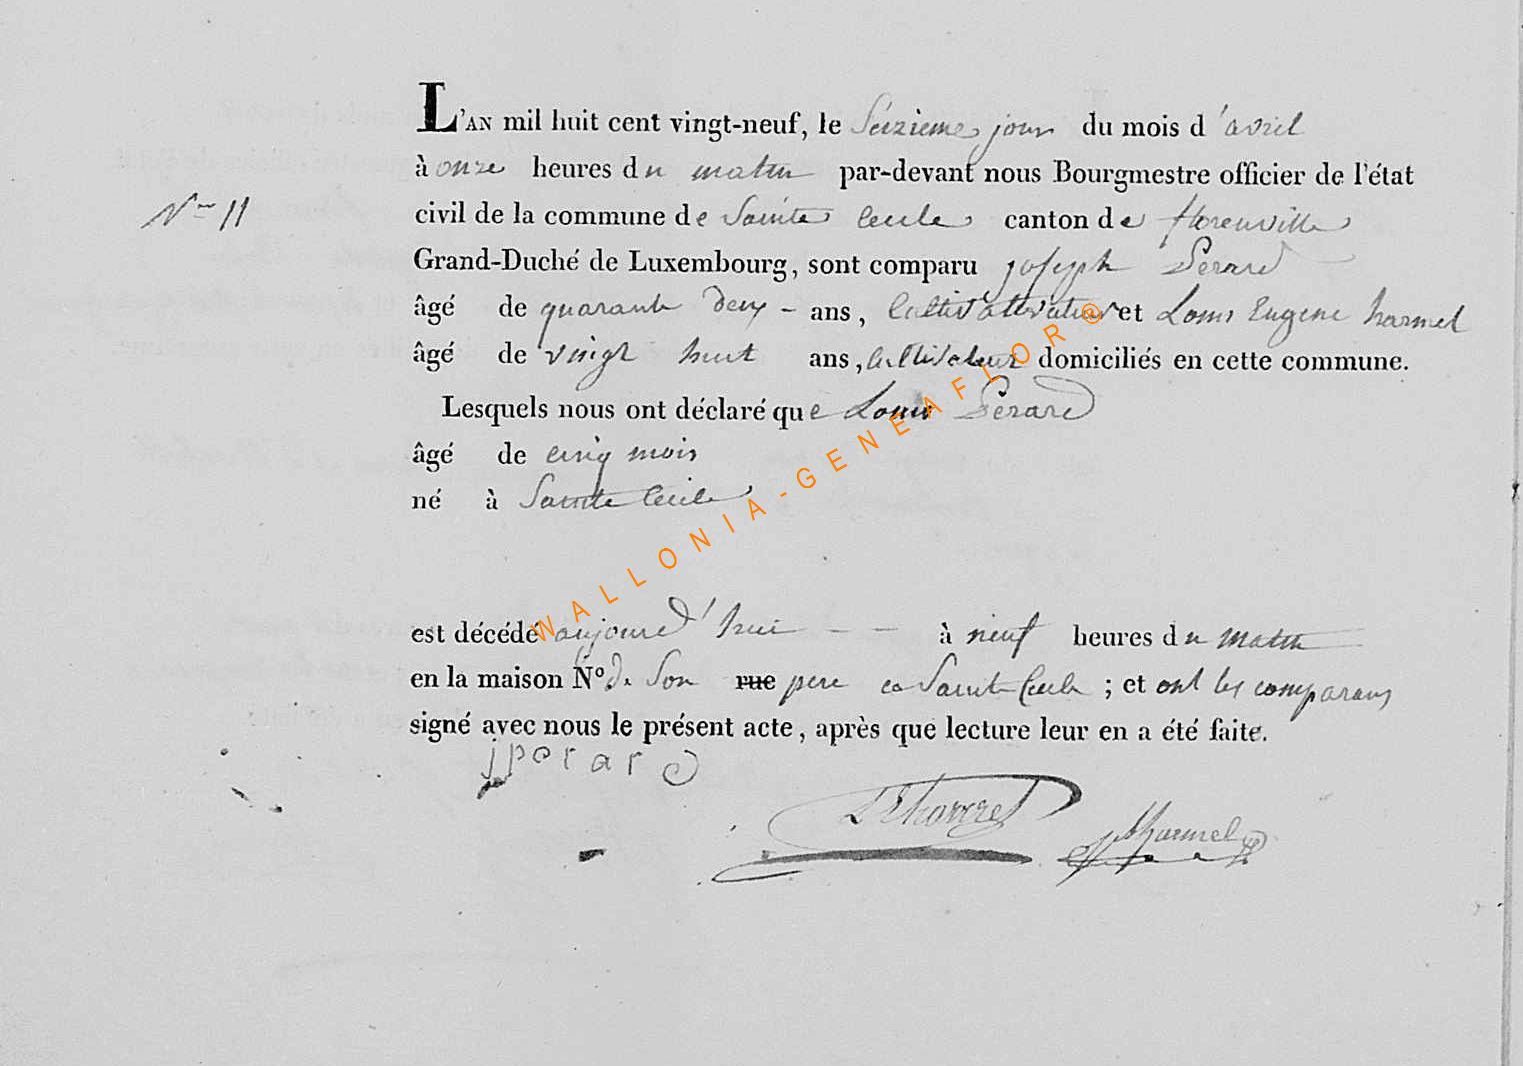 L'AN mil huit cent vingt-neuf, le Seizieme jour du mois d'avril
à onze heures du matin par-devant nous Bourgmestre officier de l'état
N° 11
civil de la commune de Sainte Cecile canton de florenville
Grand-Duché de Luxembourg, sont comparu joseph Perard
âgé de quarante deux - ans, et Louis Eugene harmel
âgé de vingt huit ans, Cultivateur domiciliés en cette commune.
Lesquels nous ont déclaré que Louis Perard
âgé de cinq mois
né à Sainte Cecile
est décédé aujourd'hui - - à neuf heures du matin
en la maison N° de Son rue pere a Sainte Cecile ; et ont les comparans
signé avec nous le présent acte, après que lecture leur en a été faite.
jperard
Harmel
WALLONIA-GENEAFLOR®